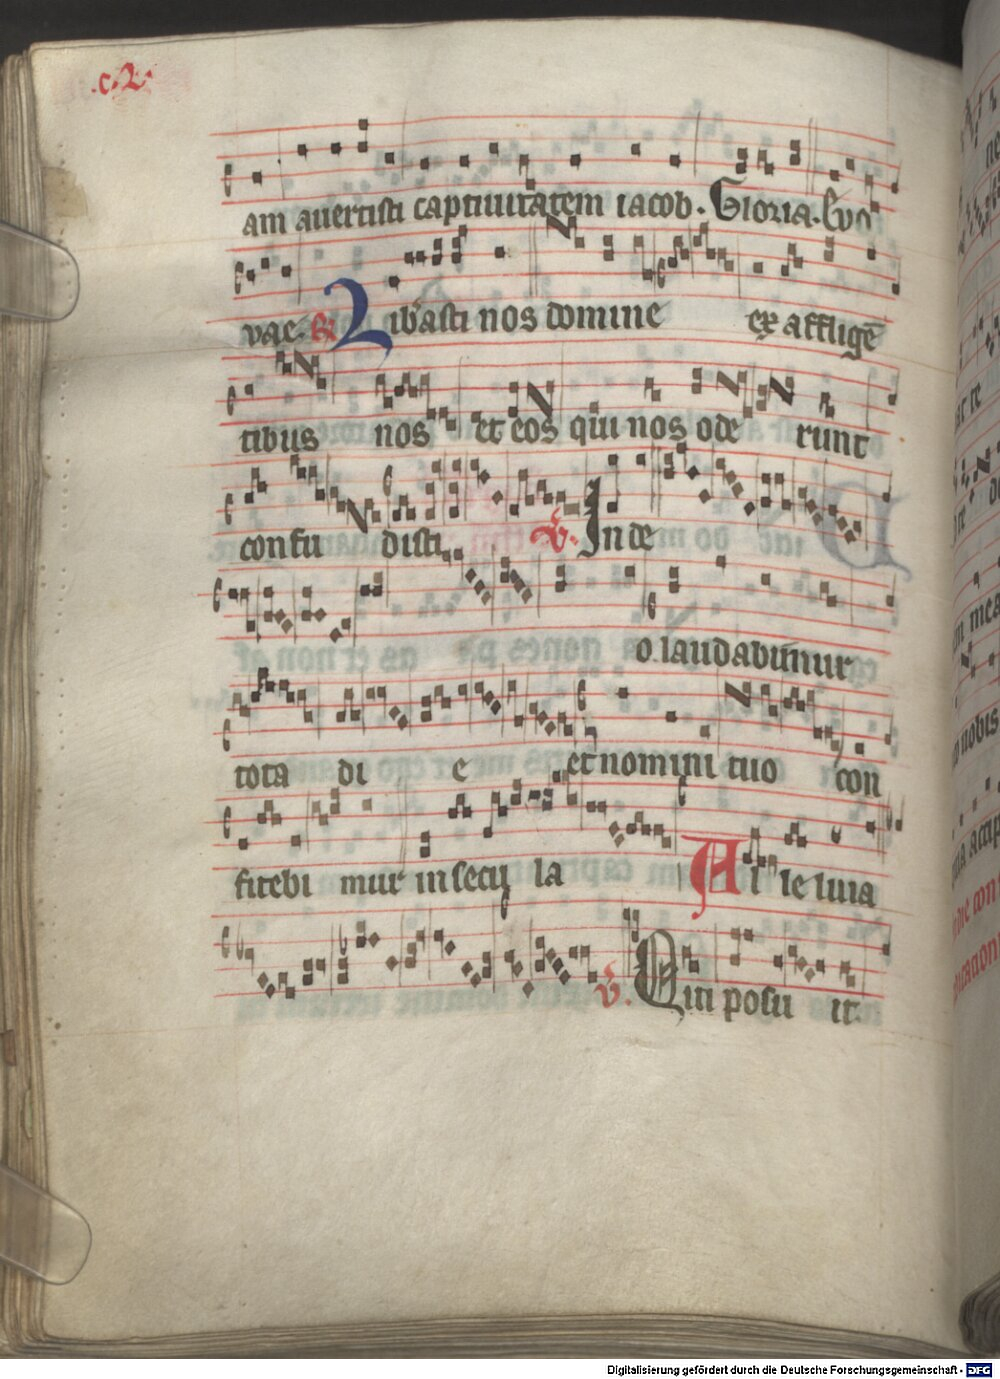 .c.2.
am auertisti captiuitatem iacob. Gloria. Euo
uae. Gͬ Libͬasti nos domine ex affligē
tibus nos et eos qui nos ode runt
confu disti V. In de
o laudabimur
tota di e et nomini tuo con
fitebi mur in secu la Al le luia
V. Qui posu it
Digitalisierung gefördert durch die Deutsche Forschungsgemeinschaft - DFG